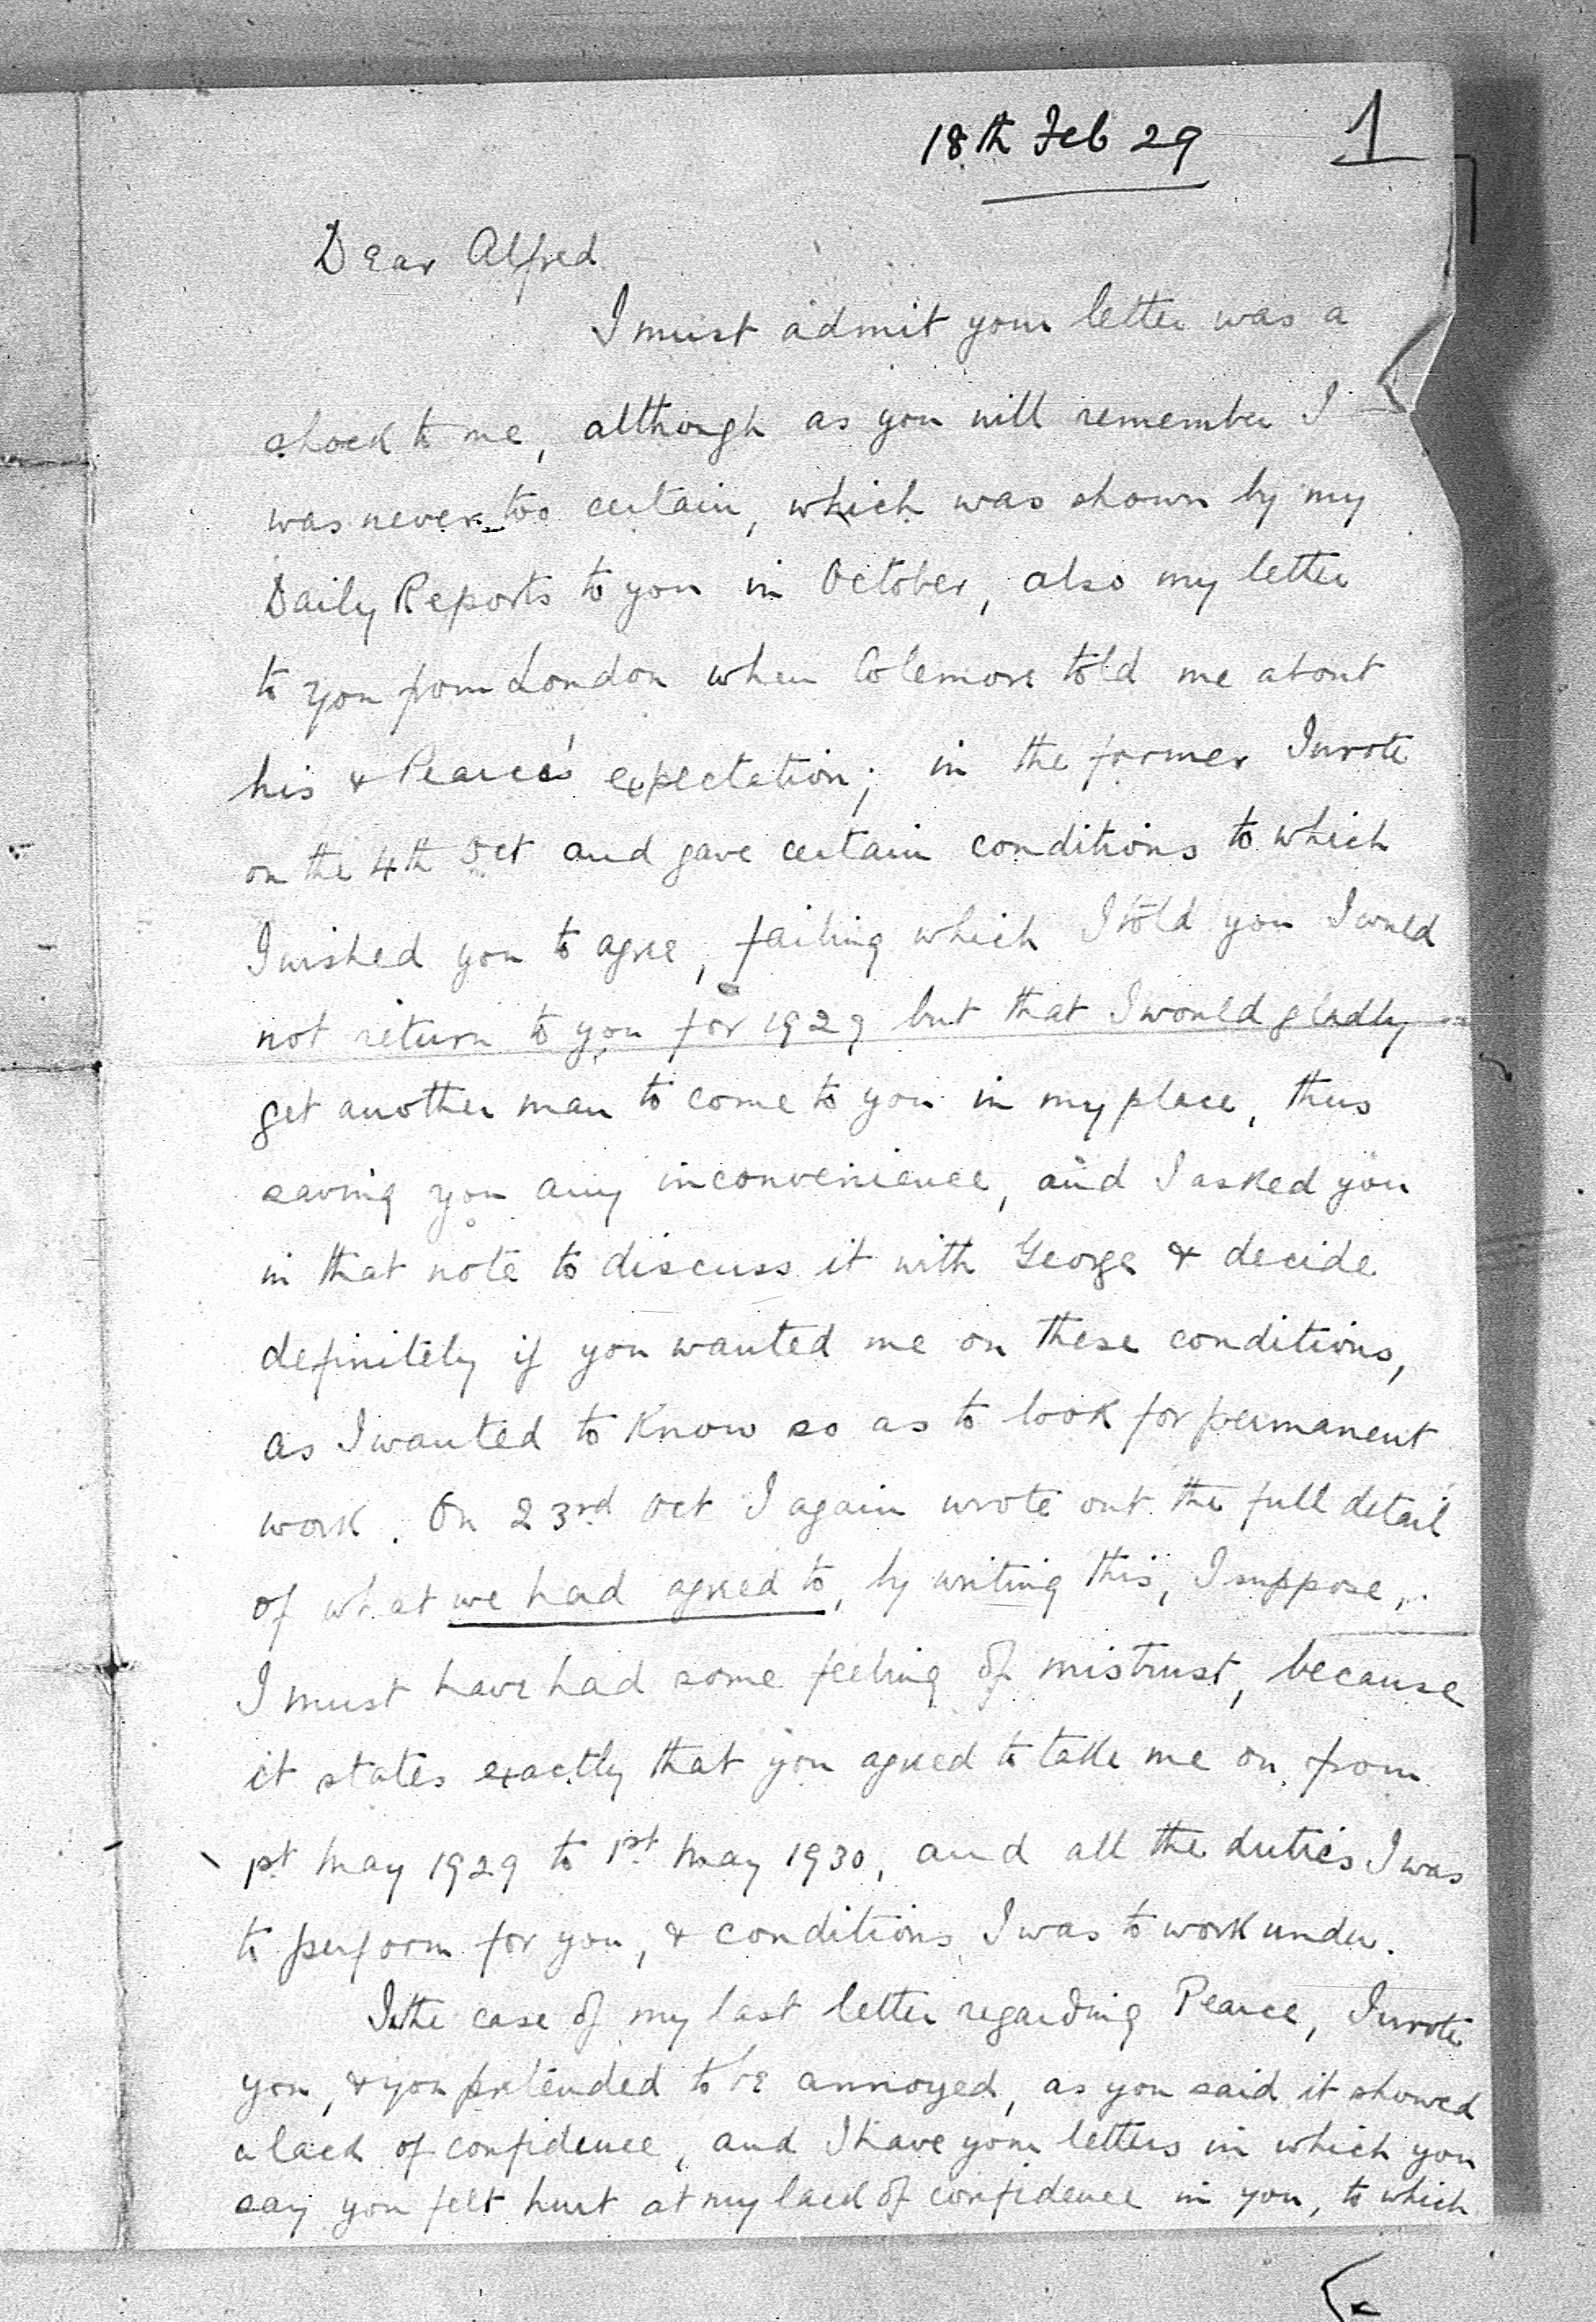 18th Feb 29
1
Dear Alfred
I must admit your letter was a
shock to me, although as you will remember I
was never too certain, which was shown by my
Daily Reports to you in October, also my letter
to you from London when Colemore told me about
his & Pearce's expectation; in the former I wrote
on the 4th Oct and gave certain conditions to which
I wished you to agree, failing which I told you I would
not return to you for 1929 but that I would gladly
get another man to come to you in my place, thus
saving you any inconvenience, and I asked you
in that note to discuss it with George & decide
definitely if you wanted me on these conditions,
as I wanted to know so as to look for permanent
work. On 23rd Oct I again wrote out the full detail
of what we had agreed to, by writing this, I suppose,
I must have had some feeling of mistrust, because
it states exactly that you agreed to take me on from
1st May 1929 to 1st May 1930, and all the duties I was
to perform for you, & conditions I was to work under.
In the case of my last letter regarding Pearce, I wrote
you, & you pretended to be annoyed, as you said it showed
a lack of confidence, and I have your letters in which you
say you felt hurt at my lack of confidence in you, to which